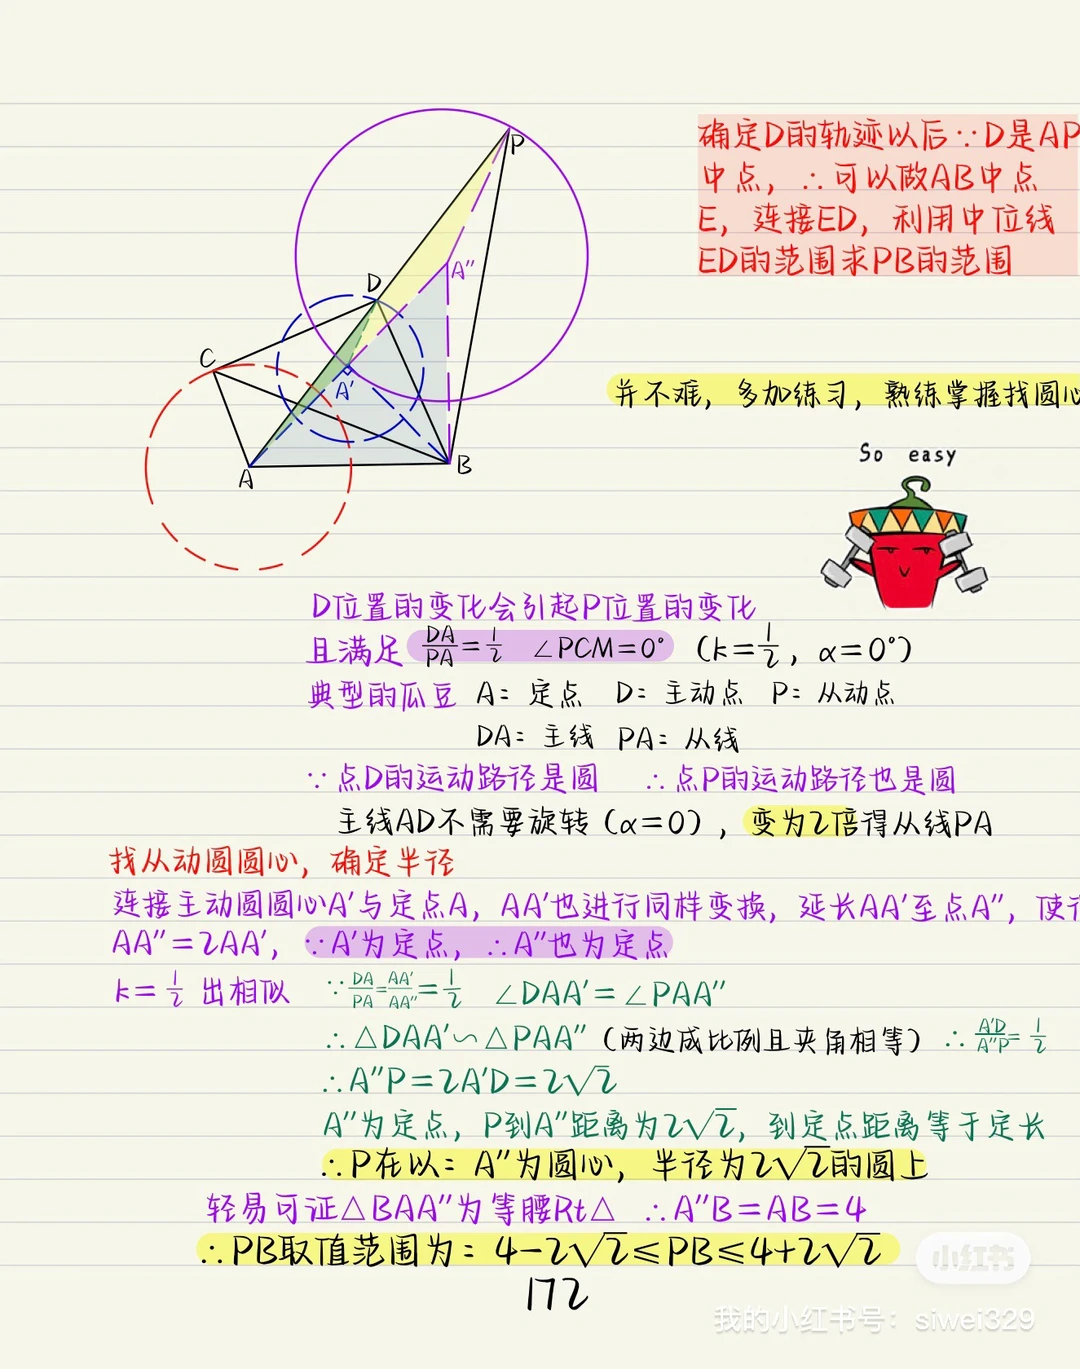 P
D
A″
C
A′
A
B
确定D的轨迹以后∵D是AP
中点，∴可以做AB中点
E，连接ED，利用中位线
ED的范围求PB的范围
并不难，多加练习，熟练掌握找圆心
So easy
D位置的变化会引起P位置的变化
且满足 DA/PA=1/2 ∠PCM=0° (k=1/2, α=0°)
典型的瓜豆 A：定点 D：主动点 P：从动点
DA：主线 PA：从线
∵点D的运动路径是圆 ∴点P的运动路径也是圆
主线AD不需要旋转(α=0)，变为2倍得从线PA
找从动圆圆心，确定半径
连接主动圆圆心A′与定点A，AA′也进行同样变换，延长AA′至点A″，使
AA″=2AA′，∵A′为定点，∴A″也为定点
k=1/2 出相似 ∵DA/PA=AA′/AA″=1/2 ∠DAA′=∠PAA″
∴△DAA′∽△PAA″(两边成比例且夹角相等) ∴A′D/A″P=1/2
∴A″P=2A′D=2√2
A″为定点，P到A″距离为2√2，到定点距离等于定长
∴P在以：A″为圆心，半径为2√2的圆上
轻易可证△BAA″为等腰Rt△ ∴A″B=AB=4
∴PB取值范围为：4-2√2≤PB≤4+2√2
172
小红书
我的小红书号：siwei329